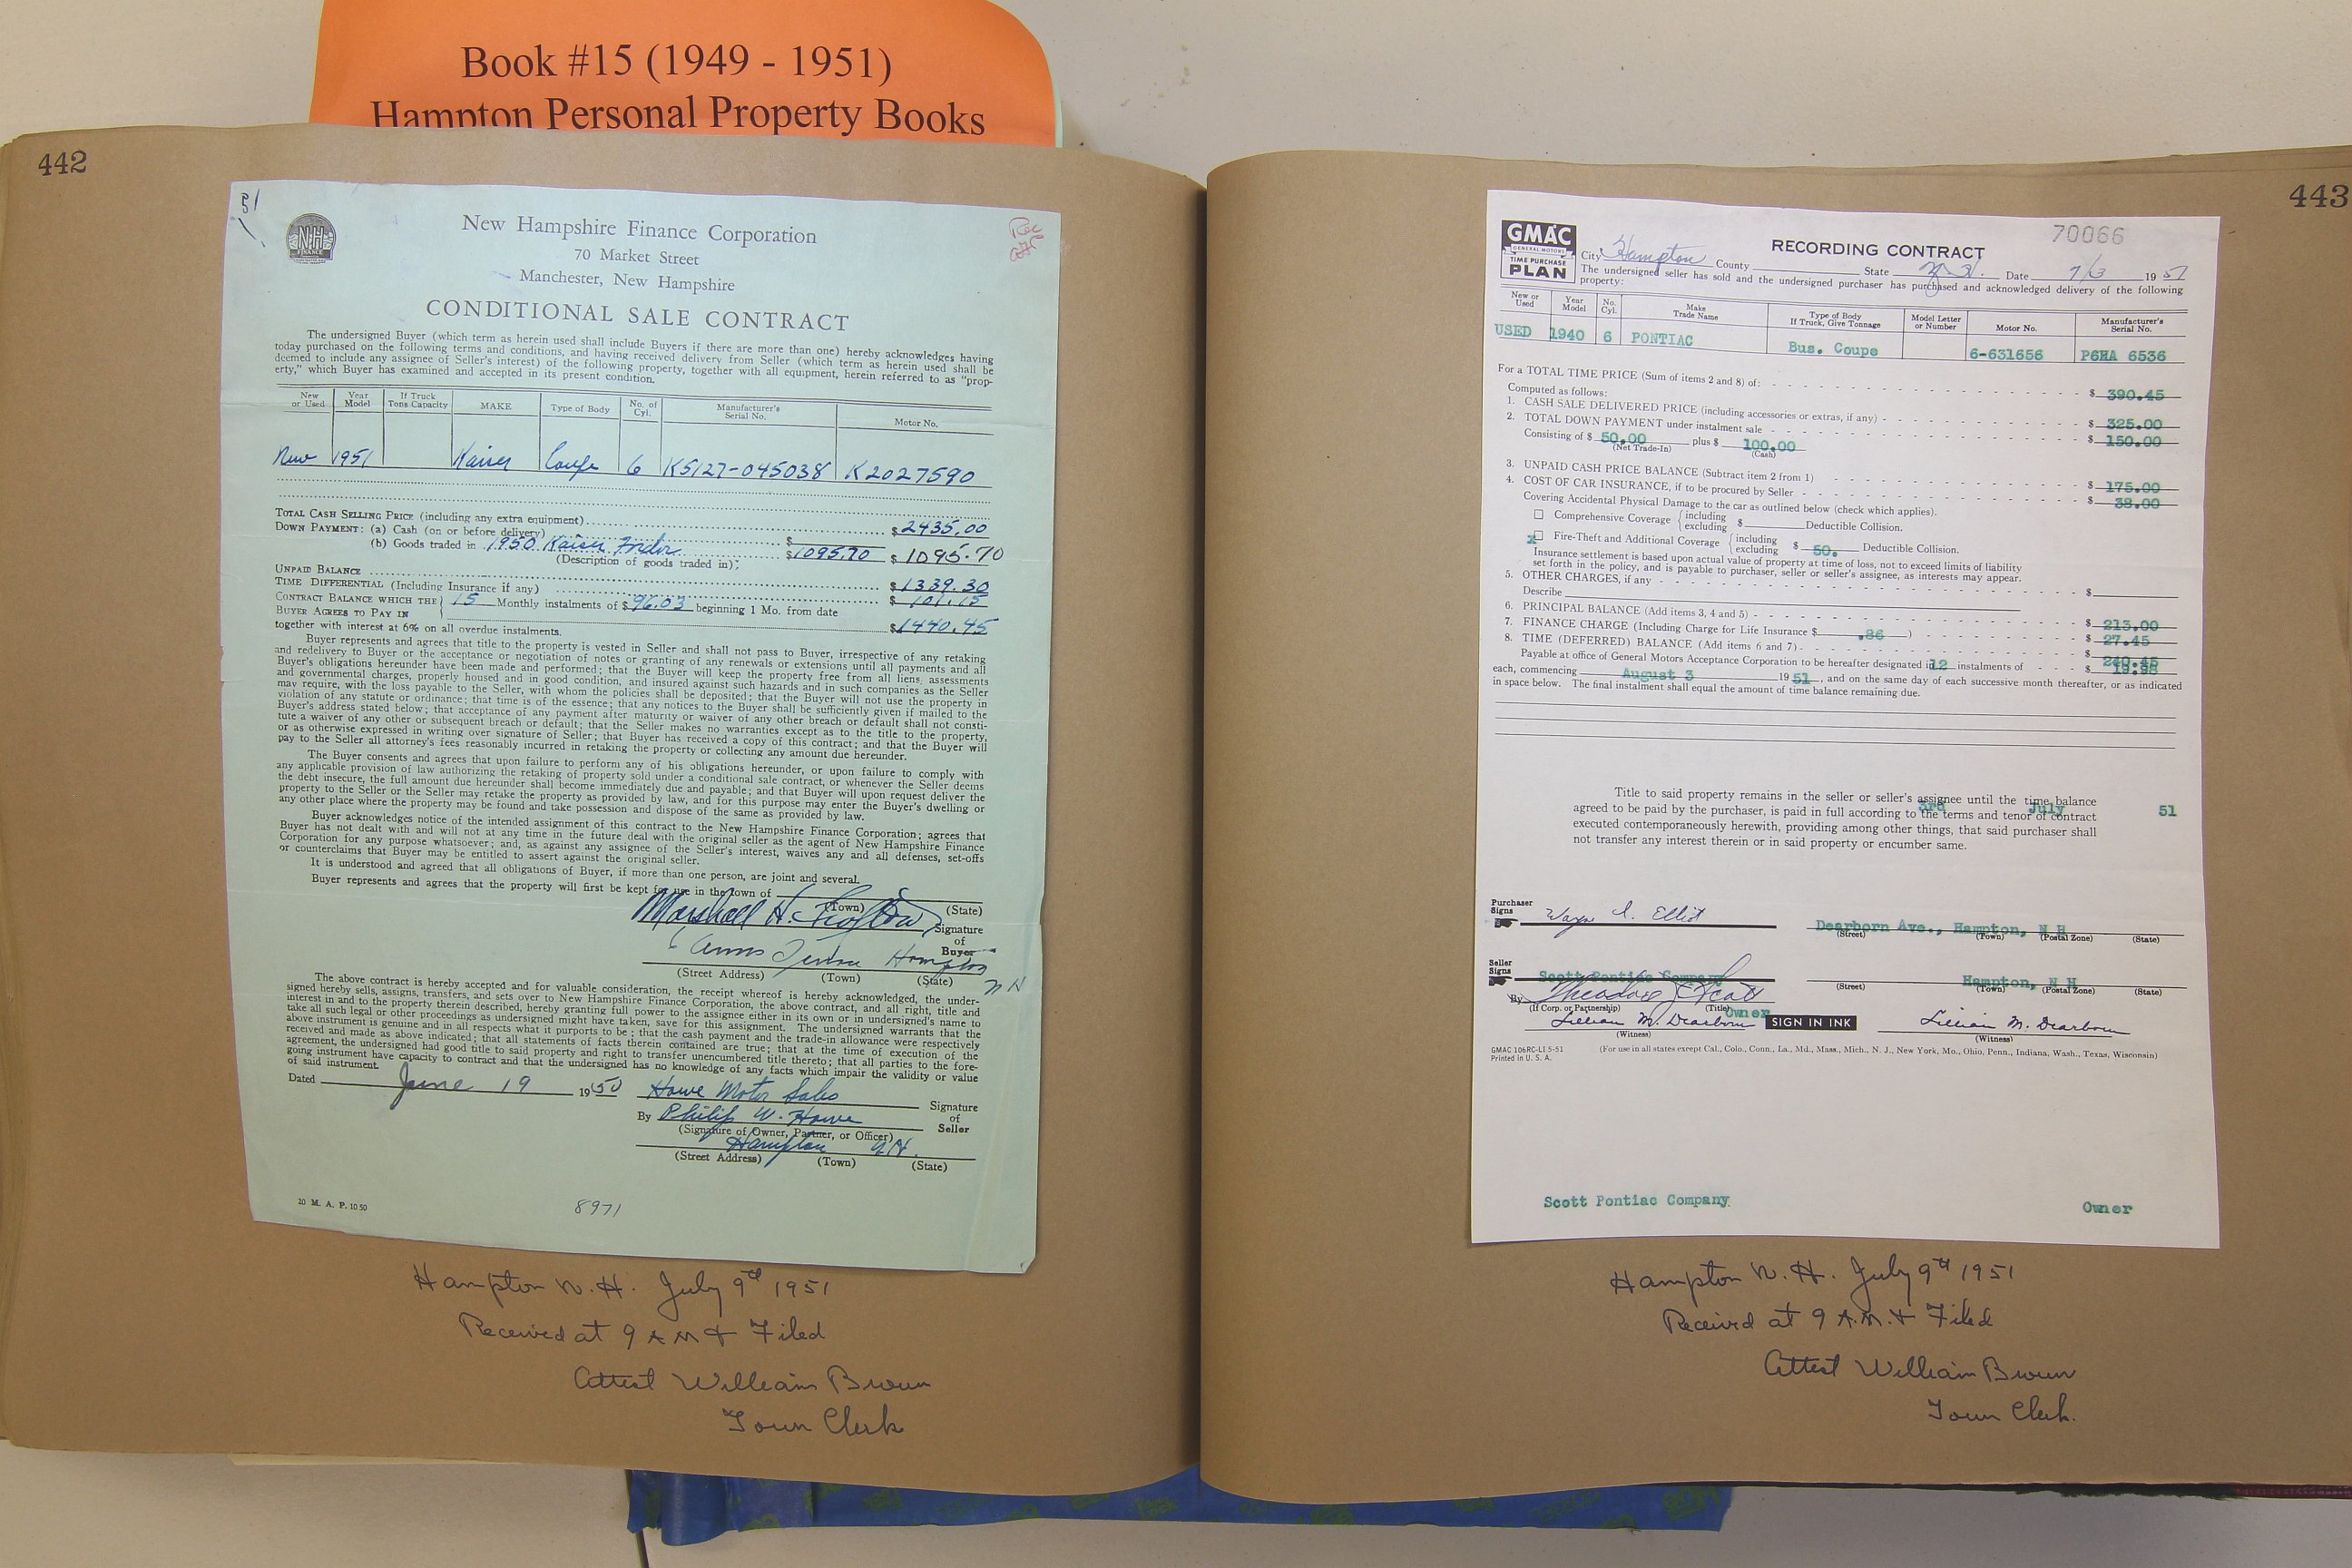 Book #15 (1949 - 1951)
Hampton Personal Property Books
442
51
NH
FINANCE
New Hampshire Finance Corporation
70 Market Street
Manchester, New Hampshire
CONDITIONAL SALE CONTRACT
The undersigned Buyer (which term as herein used shall include Buyers if there are more than one) hereby acknowledges having
today purchased on the following terms and conditions, and having received delivery from Seller (which term as herein used shall be
deemed to include any assignee of Seller's interest) of the following property, together with all equipment, herein referred to as "prop-
erty," which Buyer has examined and accepted in its present condition.
New or Used Year Model If Truck Tons Capacity MAKE Type of Body No. of Cyl. Manufacturer's Serial No. Motor No.
New 1951 Kaiser Coupe 6 K5127-045038 K2027590
TOTAL CASH SELLING PRICE (including any extra equipment) $2435.00
DOWN PAYMENT: (a) Cash (on or before delivery) $
(b) Goods traded in 1950 Kaiser Fordor $1095.70 $1095.70
(Description of goods traded in);
UNPAID BALANCE $1339.30
TIME DIFFERENTIAL (Including Insurance if any) $101.15
CONTRACT BALANCE WHICH THE BUYER AGREES TO PAY IN 15 Monthly instalments of $96.03 beginning 1 Mo. from date $1440.45
together with interest at 6% on all overdue instalments.
Buyer represents and agrees that title to the property is vested in Seller and shall not pass to Buyer, irrespective of any retaking
and redelivery to Buyer or the acceptance or negotiation of notes or granting of any renewals or extensions until all payments and all
Buyer's obligations hereunder have been made and performed; that the Buyer will keep the property free from all liens, assessments
and governmental charges, properly housed and in good condition, and insured against such hazards and in such companies as the Seller
may require, with the loss payable to the Seller, with whom the policies shall be deposited; that the Buyer will not use the property in
violation of any statute or ordinance; that time is of the essence; that any notices to the Buyer shall be sufficiently given if mailed to the
Buyer's address stated below; that acceptance of any payment after maturity or waiver of any other breach or default shall not consti-
tute a waiver of any other or subsequent breach or default; that the Seller makes no warranties except as to the title to the property,
or as otherwise expressed in writing over signature of Seller; that Buyer has received a copy of this contract; and that the Buyer will
pay to the Seller all attorney's fees reasonably incurred in retaking the property or collecting any amount due hereunder.
The Buyer consents and agrees that upon failure to perform any of his obligations hereunder, or upon failure to comply with
any applicable provision of law authorizing the retaking of property sold under a conditional sale contract, or whenever the Seller deems
the debt insecure, the full amount due hereunder shall become immediately due and payable; and that Buyer will upon request deliver the
property to the Seller or the Seller may retake the property as provided by law, and for this purpose may enter the Buyer's dwelling or
any other place where the property may be found and take possession and dispose of the same as provided by law.
Buyer acknowledges notice of the intended assignment of this contract to the New Hampshire Finance Corporation; agrees that
Buyer has not dealt with and will not at any time in the future deal with the original seller as the agent of New Hampshire Finance
Corporation for any purpose whatsoever; and, as against any assignee of the Seller's interest, waives any and all defenses, set-offs
or counterclaims that Buyer may be entitled to assert against the original seller.
It is understood and agreed that all obligations of Buyer, if more than one person, are joint and several.
Buyer represents and agrees that the property will first be kept for use in the town of
(Town) (State)
Marshall H. Signature of Buyer
6 Anns Hampton N H
(Street Address) (Town) (State)
The above contract is hereby accepted and for valuable consideration, the receipt whereof is hereby acknowledged, the under-
signed hereby sells, assigns, transfers, and sets over to New Hampshire Finance Corporation, the above contract, and all right, title and
interest in and to the property therein described, hereby granting full power to the assignee either in its own or in undersigned's name to
take all such legal or other proceedings as undersigned might have taken, save for this assignment. The undersigned warrants that the
above instrument is genuine and in all respects what it purports to be; that the cash payment and the trade-in allowance were respectively
received and made as above indicated; that all statements of facts therein contained are true; that at the time of execution of the
agreement, the undersigned had good title to said property and right to transfer unencumbered title thereto; that all parties to the fore-
going instrument have capacity to contract and that the undersigned has no knowledge of any facts which impair the validity or value
of said instrument.
Dated June 19 1950 Howe Motor Sales
By Philip W. Howe Signature of Seller
(Signature of Owner, Partner, or Officer)
Hampton N.H.
(Street Address) (Town) (State)
20 M. A. P. 10 50
8971
Hampton N. H. July 9th 1951
Received at 9 AM & Filed
Attest William Brown
Town Clerk
443
GMAC
GENERAL MOTORS
TIME PURCHASE
PLAN
70066
RECORDING CONTRACT
City Hampton County State N.H. Date 7/3 19 51
The undersigned seller has sold and the undersigned purchaser has purchased and acknowledged delivery of the following
property:
New or Used Year Model No. Cyl. Make Trade Name Type of Body If Truck, Give Tonnage Model Letter or Number Motor No. Manufacturer's Serial No.
USED 1940 6 PONTIAC Bus. Coupe 6-631656 P6HA 6536
For a TOTAL TIME PRICE (Sum of items 2 and 8) of: $390.45
Computed as follows:
1. CASH SALE DELIVERED PRICE (including accessories or extras, if any) $325.00
2. TOTAL DOWN PAYMENT under instalment sale $150.00
Consisting of $50.00 plus $100.00
(Net Trade-In) (Cash)
3. UNPAID CASH PRICE BALANCE (Subtract item 2 from 1) $175.00
4. COST OF CAR INSURANCE, if to be procured by Seller $38.00
Covering Accidental Physical Damage to the car as outlined below (check which applies).
Comprehensive Coverage {including excluding $ Deductible Collision.
x Fire-Theft and Additional Coverage {including excluding $50. Deductible Collision.
Insurance settlement is based upon actual value of property at time of loss, not to exceed limits of liability
set forth in the policy, and is payable to purchaser, seller or seller's assignee, as interests may appear.
5. OTHER CHARGES, if any $
Describe
6. PRINCIPAL BALANCE (Add items 3, 4 and 5) $213.00
7. FINANCE CHARGE (Including Charge for Life Insurance $.86) $27.45
8. TIME (DEFERRED) BALANCE (Add items 6 and 7) $240.45
Payable at office of General Motors Acceptance Corporation to be hereafter designated in 12 instalments of $19.98
each, commencing August 3 1951, and on the same day of each successive month thereafter, or as indicated
in space below. The final instalment shall equal the amount of time balance remaining due.
Title to said property remains in the seller or seller's assignee until the time balance
3rd July 51
agreed to be paid by the purchaser, is paid in full according to the terms and tenor of contract
executed contemporaneously herewith, providing among other things, that said purchaser shall
not transfer any interest therein or in said property or encumber same.
Purchaser Signs Wayne I. Elliot Dearborn Ave., Hampton, N H
(Street) (Town) (Postal Zone) (State)
Seller Signs Scott Pontiac Company Hampton, N H
(Street) (Town) (Postal Zone) (State)
By Theodore J. Scott
(If Corp. or Partnership) (Title) Owner
Lillian M. Dearborn SIGN IN INK Lillian M. Dearborn
(Witness) (Witness)
GMAC 106RC-LI 5-51 (For use in all states except Cal., Colo., Conn., La., Md., Mass., Mich., N. J., New York, Mo., Ohio, Penn., Indiana, Wash., Texas, Wisconsin)
Printed in U. S. A.
Scott Pontiac Company Owner
Hampton N. H. July 9th 1951
Received at 9 A.M. & Filed
Attest William Brown
Town Clerk.